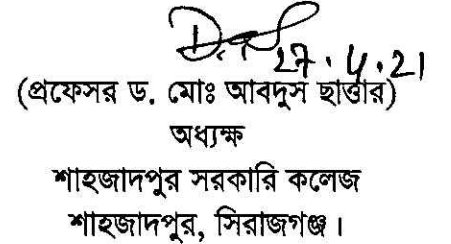 27.4.21
(প্রফেসর ড. মোঃ আবদুস ছাত্তার)
অধ্যক্ষ
শাহজাদপুর সরকারি কলেজ
শাহজাদপুর, সিরাজগঞ্জ।